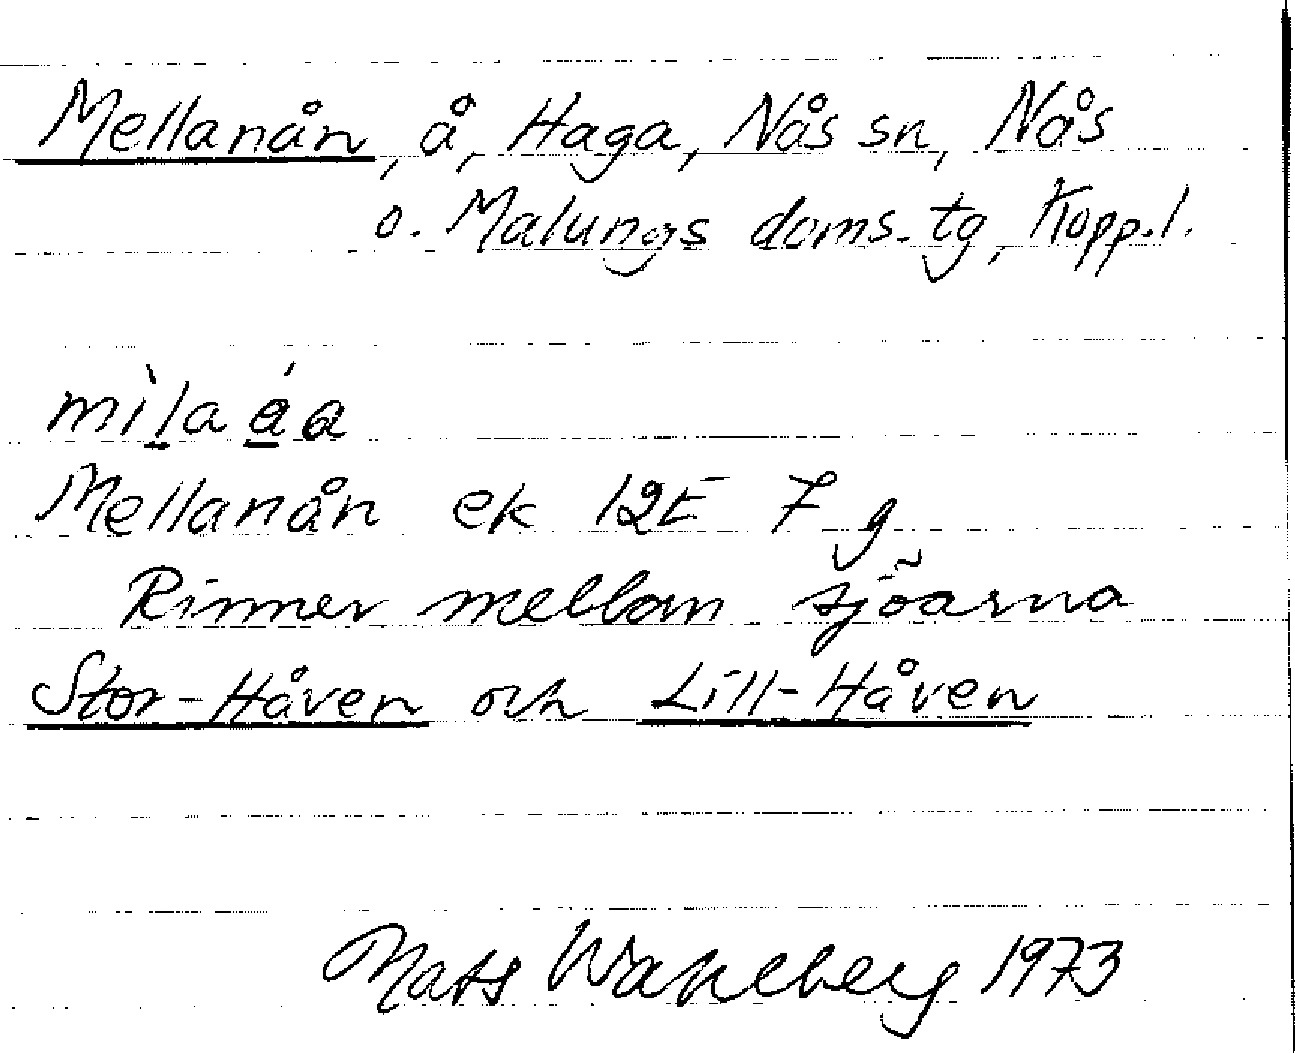 Mellanån, å, Haga, Nås sn, Nås
o. Malungs doms. tg, Kopp.l.
mìlaáa
Mellanån ek 12E 7 g
Rinner mellan sjöarna
Stor-Håven och Lill-Håven
Mats Wahlberg 1973